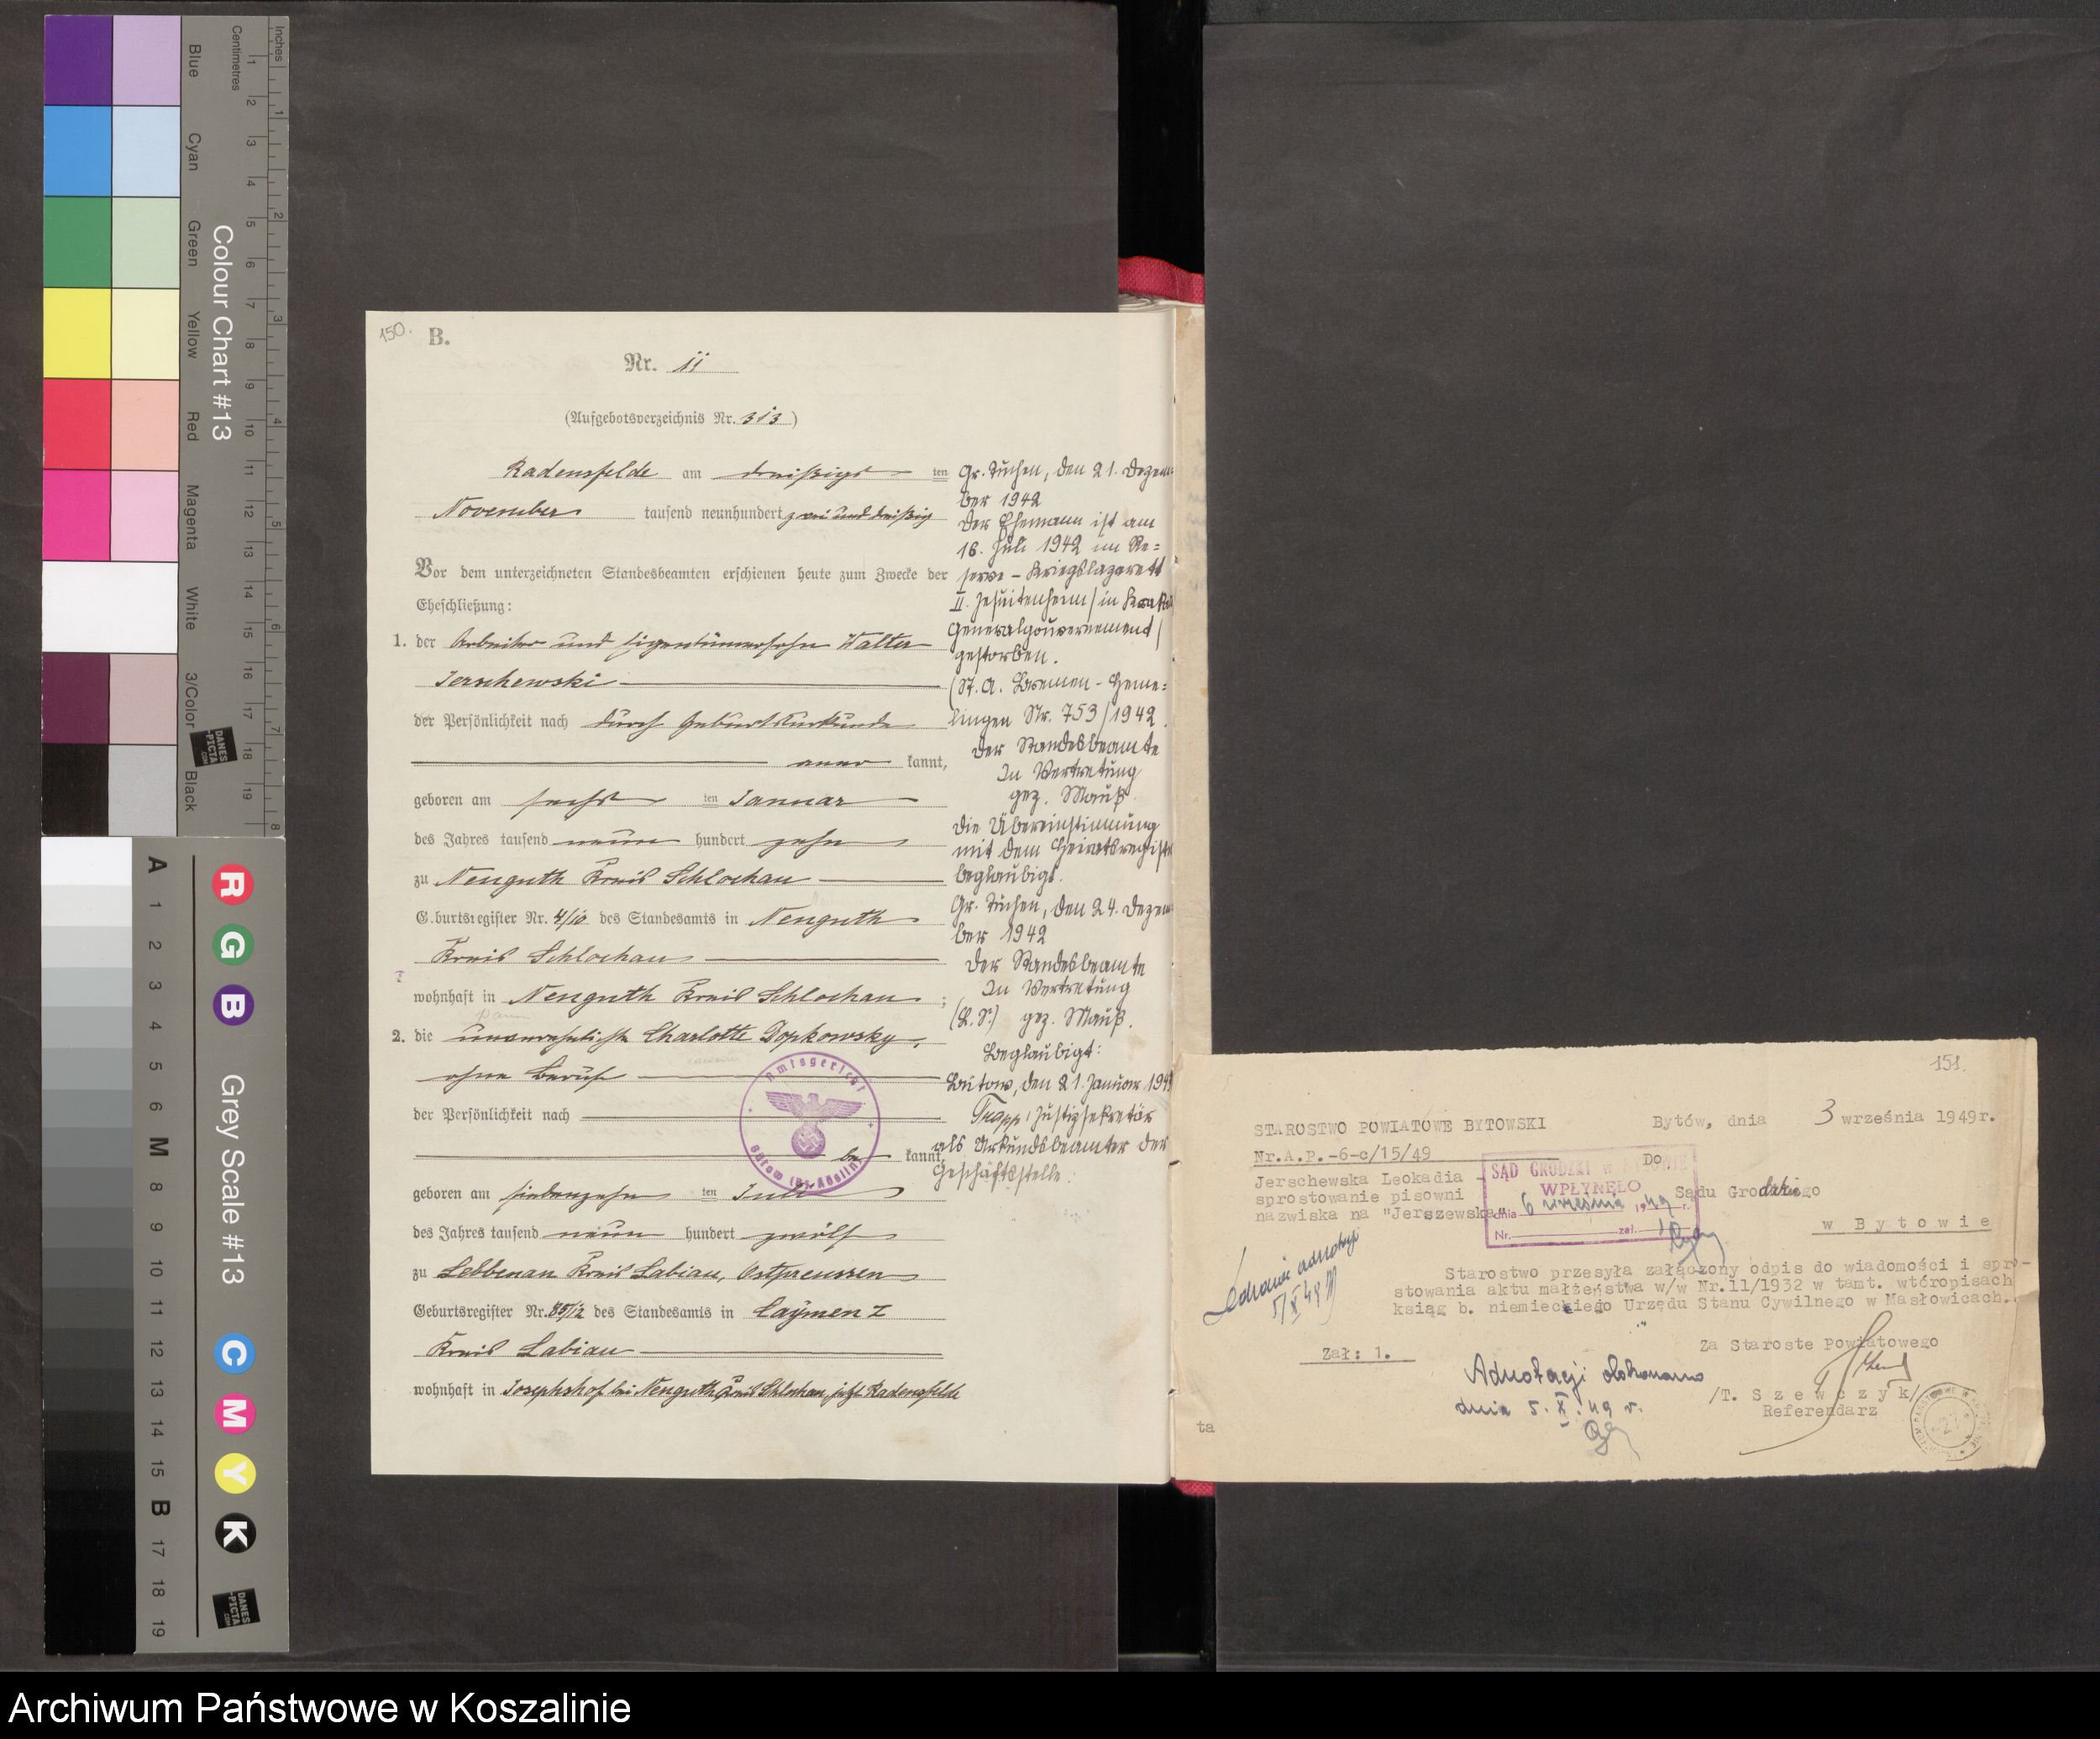 Blue
Cyan
Green
Yellow
Red
Magenta
White
3/Color
Black
Colour Chart #13
Centimetres
Inches
1 2 3 4 5 6 7 8 9 10 11 12 13 14 15 16 17 18 19
1 2 3 4 5 6 7 8
DANES
-PICTA
.COM
A 1 2 3 4 5 6 M 8 9 10 11 12 13 14 15 B 17 18 19
R G B
Grey Scale #13
C M Y K
DANES
-PICTA
.COM
150.
B.
Nr. 11
(Aufgebotsverzeichnis Nr. 313)
Radensfelde am dreißigs ten
November tausend neunhundert zwei und dreißig
Vor dem unterzeichneten Standesbeamten erschienen heute zum Zwecke der
Eheschließung:
1. der Arbeiter und Eigentümersohn Walter
Jerschewski
der Persönlichkeit nach durch Geburtsurkunde
aner kannt,
geboren am sechs ten Januar
des Jahres tausend neun hundert zehn
zu Neuguth Kreis Schlochau
Geburtsregister Nr. 4/10 des Standesamts in Neuguth
Kreis Schlochau
wohnhaft in Neuguth Kreis Schlochau ;
2. die unverehelichte Charlotte Dopkowsky,
ohne Beruf
der Persönlichkeit nach
be kannt,
geboren am siebenzehn ten Juli
des Jahres tausend neun hundert zwölf
zu Lebbenau Kreis Labiau, Ostpreussen
Geburtsregister Nr. 85/12 des Standesamts in Caymen I
Kreis Labiau
wohnhaft in Josephshof bei Neuguth, Kreis Schlochau, jetzt Radensfelde
Amtsgericht
Bütow (Bz. Köslin)
Gr. Tuchen, den 21. Dezem-
ber 1942
Der Ehemann ist am
16. Juli 1942 im Re=
serve-Kriegslazarett
II. Jesuitenheim / in Krakau
Generalgouvernement /
gestorben.
(St. A. Bremen-Heme=
lingen Nr. 753/1942.
Der Standesbeamte
In Vertretung
gez. Mauß.
Die Übereinstimmung
mit dem Heiratsregister
beglaubigt.
Gr. Tuchen, den 24. Dezem
ber 1942
Der Standesbeamte
In Vertretung
(L.S.) gez. Mauß.
Beglaubigt:
Bütow, den 21. Januar 194
Trapp, Justizsekretär
als Urkundsbeamter der
Geschäftsstelle.
151.
STAROSTWO POWIATOWE BYTOWSKI
Bytów, dnia 3 września 1949r.
Nr.A.P.-6-c/15/49
Do
Jerschewska Leokadia -
sprostowanie pisowni
nazwiska na "Jerszewska"
Sądu Grodzkiego
w Bytowie
SĄD GRODZKI w BYTOWIE
WPŁYNĘŁO
dnia 6 września 1949 r.
Nr. zał. 1
Starostwo przesyła załączony odpis do wiadomości i spro-
stowania aktu małżeństwa w/w Nr.11/1932 w tamt. wtóropisach
ksiąg b. niemieckiego Urzędu Stanu Cywilnego w Masłowicach.
Zał: 1.
Za Staroste Powiatowego
/T. Szewczyk/
Referendarz
Adnotacji dokonano
dnia 5. X. 49 r.
5/X 49
ta
Archiwum Państwowe w Koszalinie